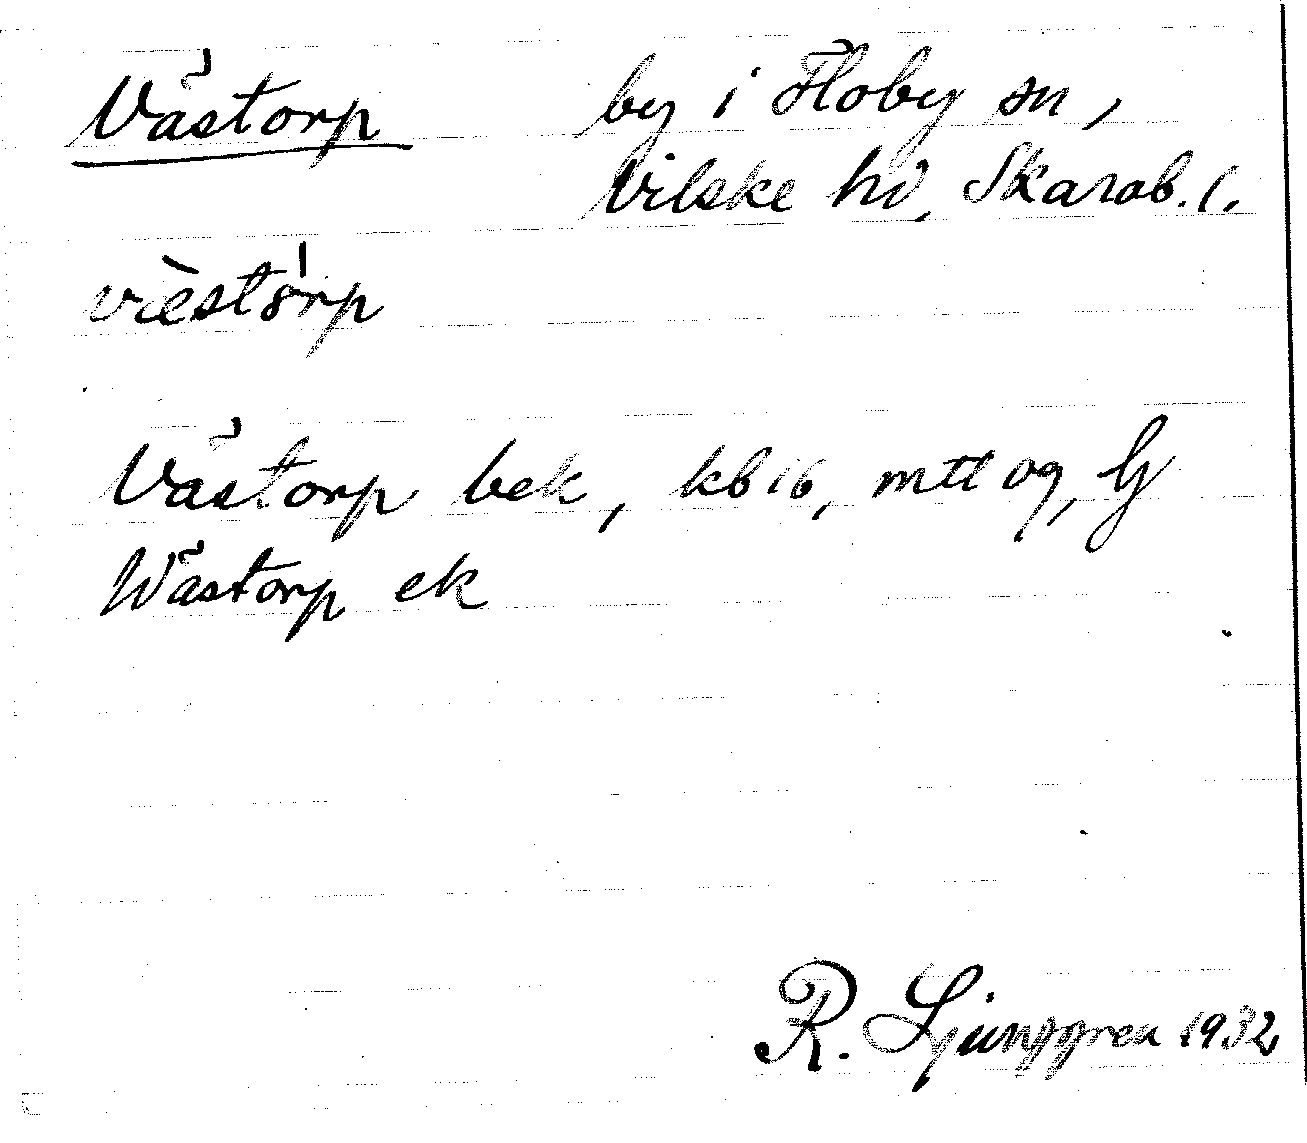 Västorp by i Floby sn,
Vilske hd, Skarab. l.
vèstórp
Västorp bek, kb 16, mtl og, Lj
Wästorp ek
R. Ljunggren 1932